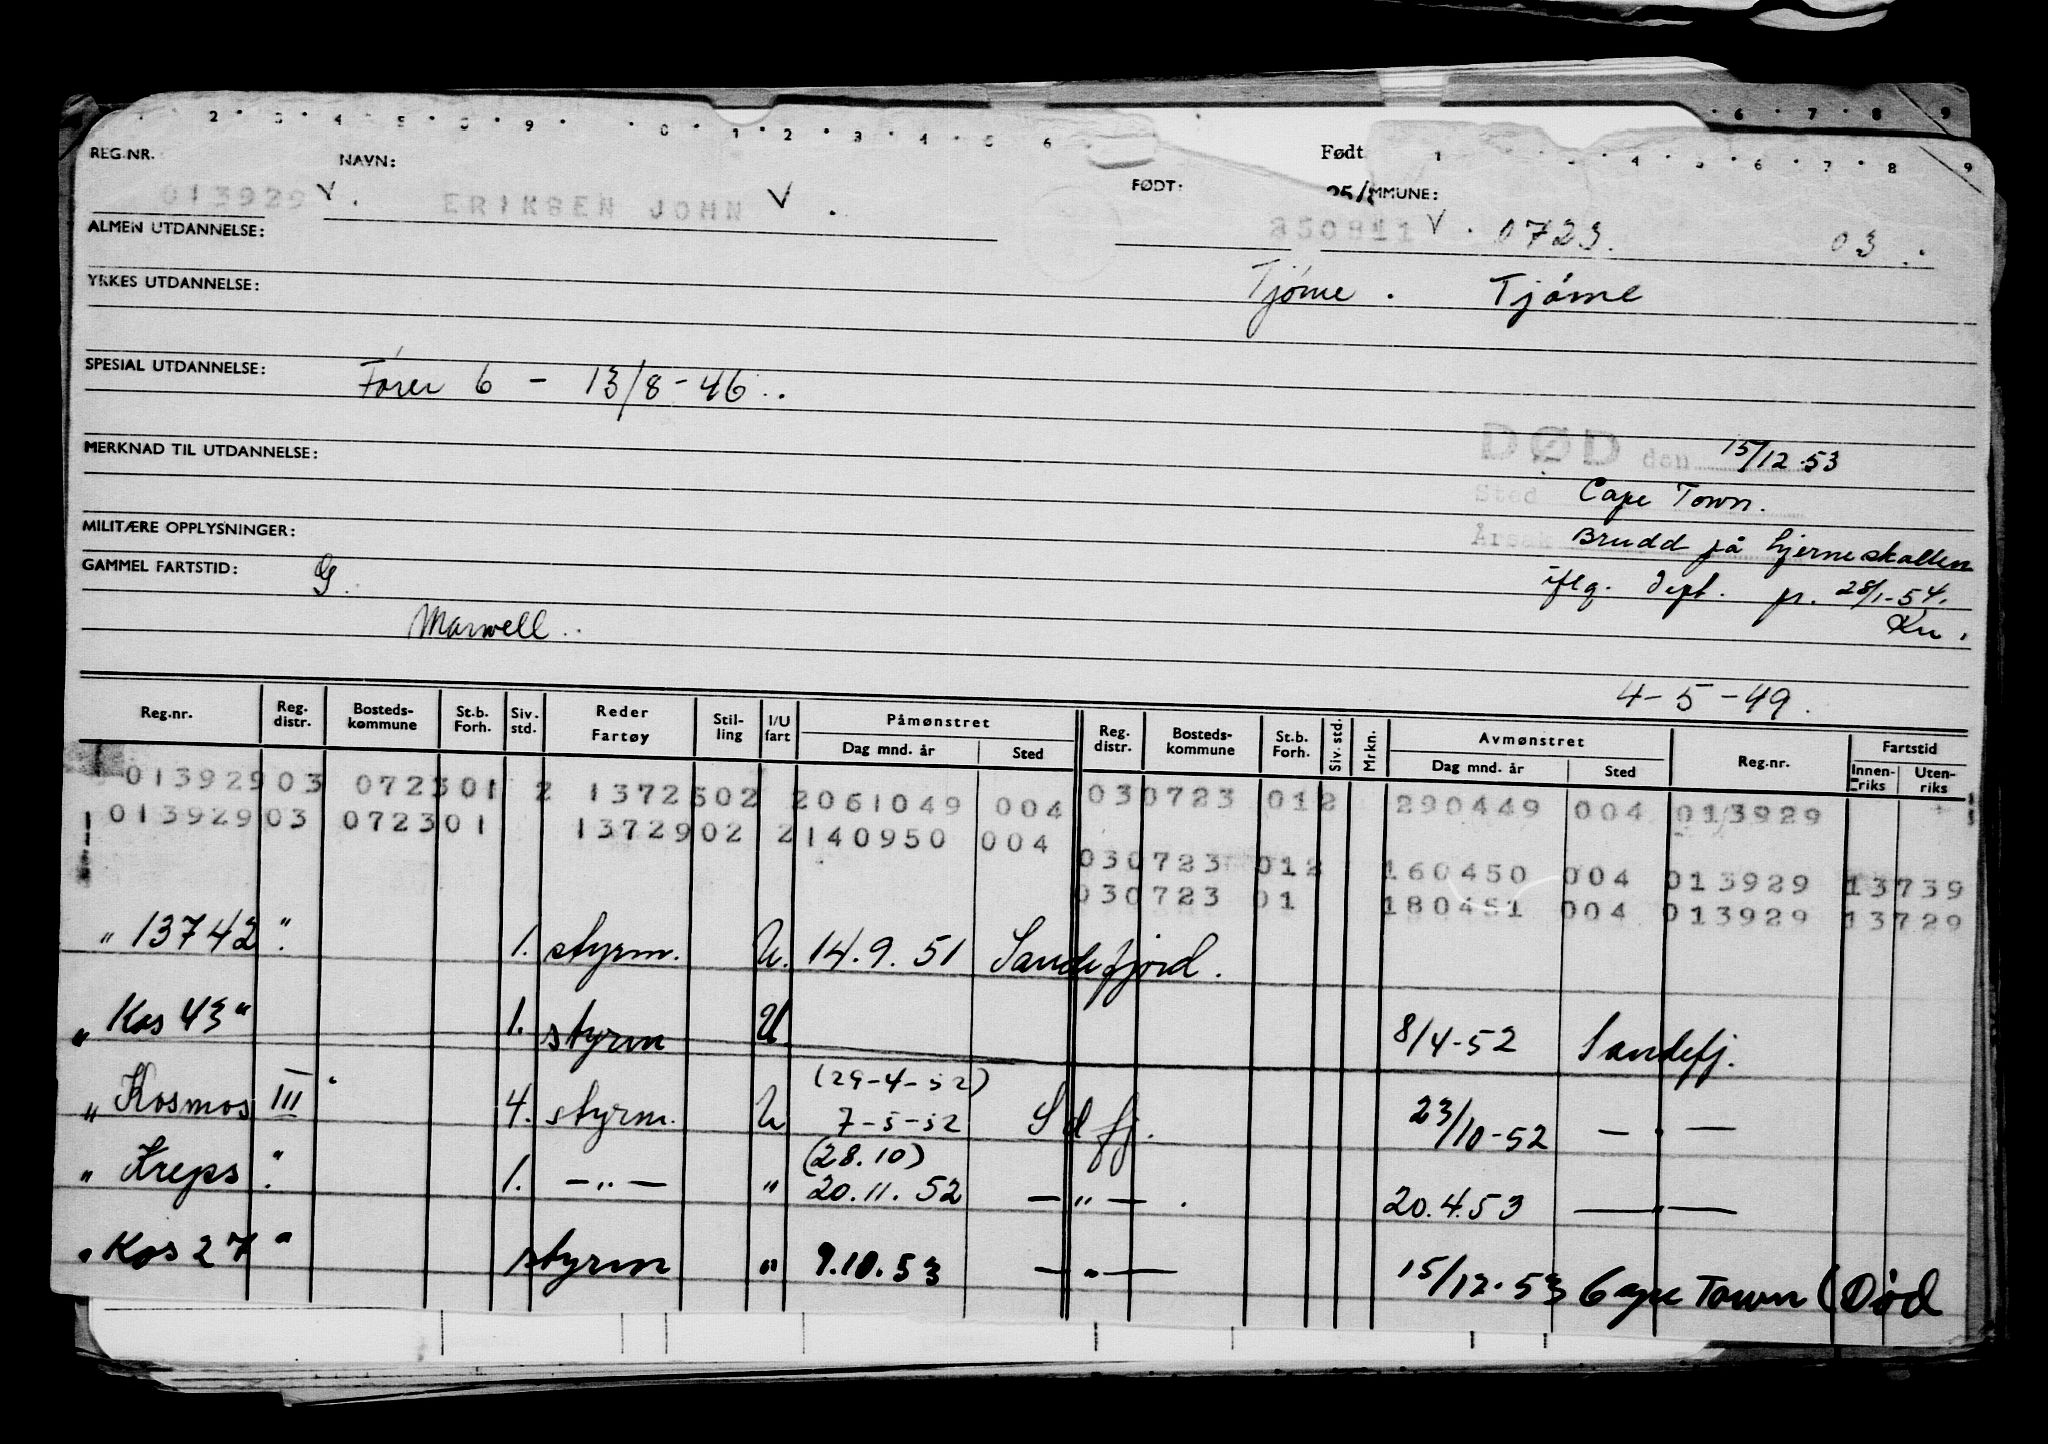 2 · 3 · 4 · 5 · 8 · 9 · 0 · 1 · 2 · 3 · 4 · 5 6 1 4 · 5 · 6 · 7 · 8 · 9
6 · 7 · 8 · 9
REG.NR. NAVN: Født
FØDT: 25/8 MMUNE:
013929 V. ERIKSEN JOHN V . 250811 V . 0723. 03 . .
ALMEN UTDANNELSE:
YRKES UTDANNELSE: Tjøme . Tjøme
SPESIAL UTDANNELSE: Fører 6 - 13/8-46 . .
MERKNAD TIL UTDANNELSE: DØD den 15/12.53
Sted Cape Town.
MILITÆRE OPPLYSNINGER: Årsak Brudd på hjerneskallen
GAMMEL FARTSTID: G. iflg. dept. pr. 28/1-54.
Marwell . . Kn.
4-5-49.
Reg.nr. Reg. distr. Bosteds- kommune St.b. Forh. Siv. std. Reder Fartøy Stil- ling I/U fart Påmønstret Dag mnd. år Sted Reg. distr. Bosteds- kommune St.b. Forh. Siv. std. Mrkn. Avmønstret Dag mnd. år Sted Reg.nr. Fartstid Innen- riks Uten- riks
013929 03 0723 01 2 13723 02 2 061049 004 03 0723 01 2 290449 004 013929
013929 03 0723 01 13729 02 2 140950 004
03 0723 01 2 160450 004 013929 13739
03 0723 01 180451 004 013929 13729
" 13742 " 1. styrm. U. 14.9.51 Sandefjord.
" Kos 43 " 1. styrm U 8/4-52 Sandefj.
(29-4-52)
" Kosmos III " 4. styrm. U 7-5-52 Sdfj. 23/10-52 — " —
(28.10)
" Kreps " 1. — " — " 20.11.52 — " — . 20.4.53 — " —
" Kos 27 " styrm " 9.10.53 — " — 15/12.53 Cape Town (Død